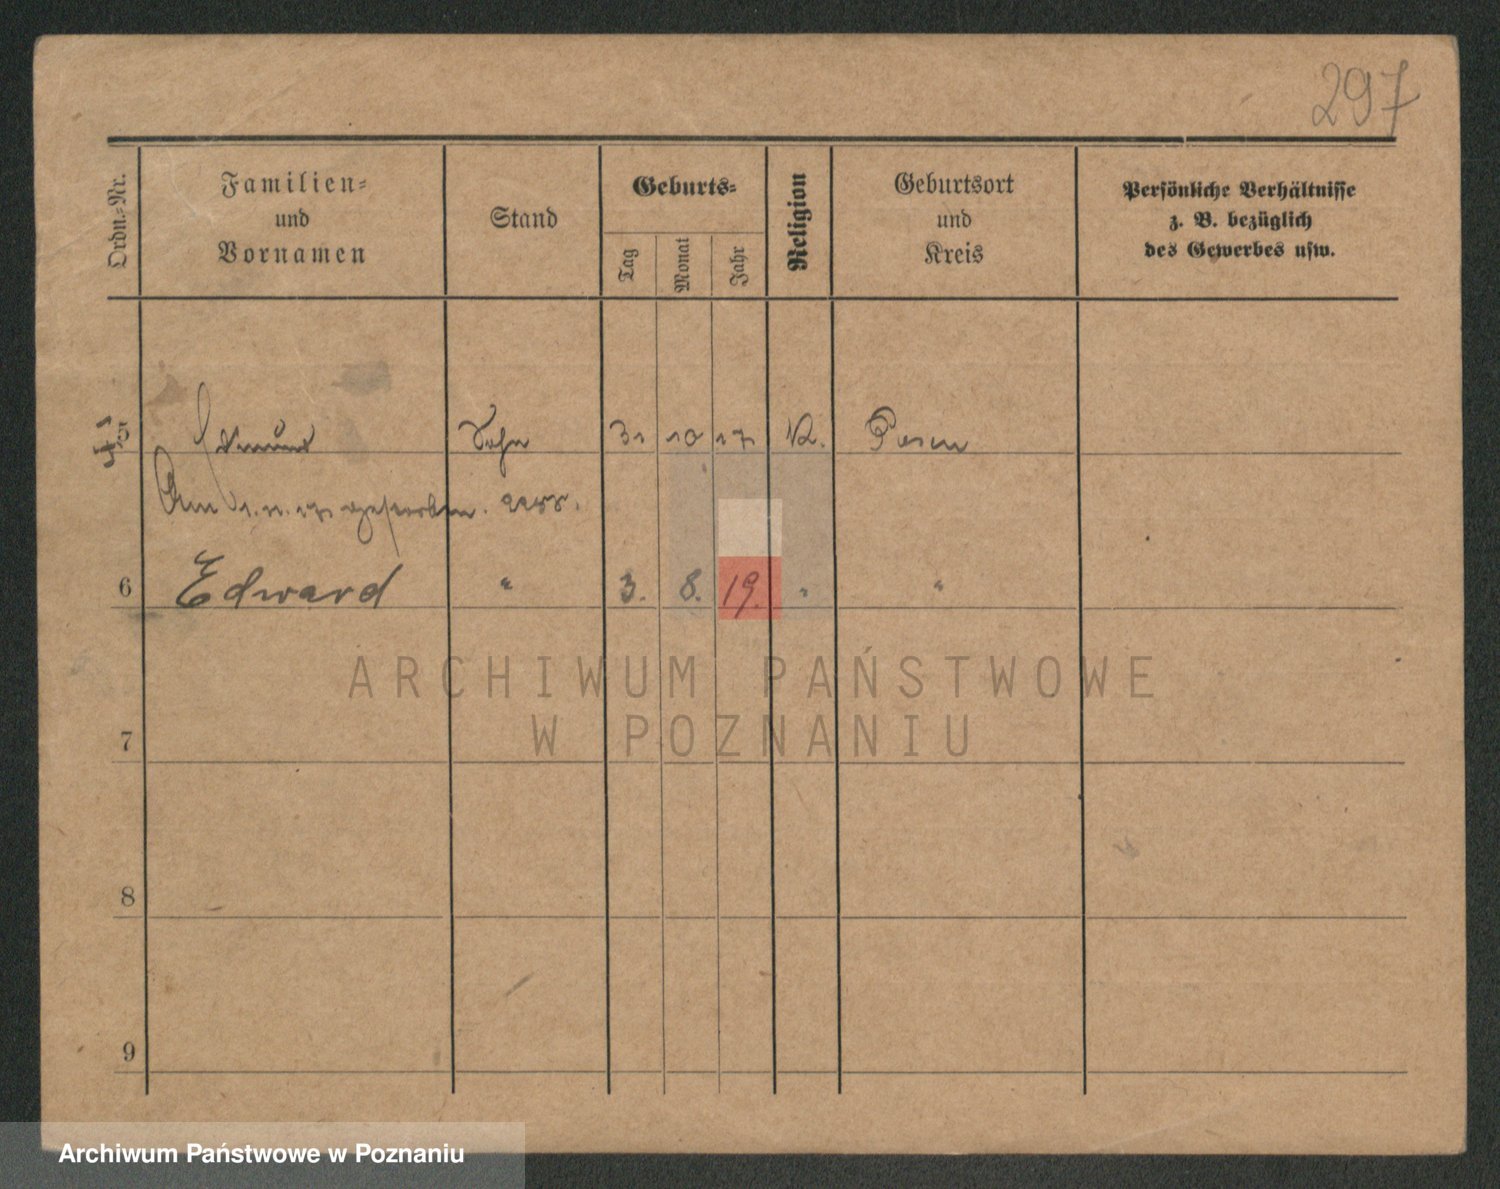 297
Ordn.-Nr.
Familien-
und
Vornamen
Stand
Geburts-
Tag
Monat
Jahr
Religion
Geburtsort
und
Kreis
Persönliche Verhältnisse
z. B. bezüglich
des Gewerbes usw.
5 Edmund Sohn 31 10 17 K. Posen
Am 1. 11. 17 gestorben.
6 Edward " 3. 8. 19. " "
ARCHIWUM PAŃSTWOWE
W POZNANIU
7
8
9
Archiwum Państwowe w Poznaniu